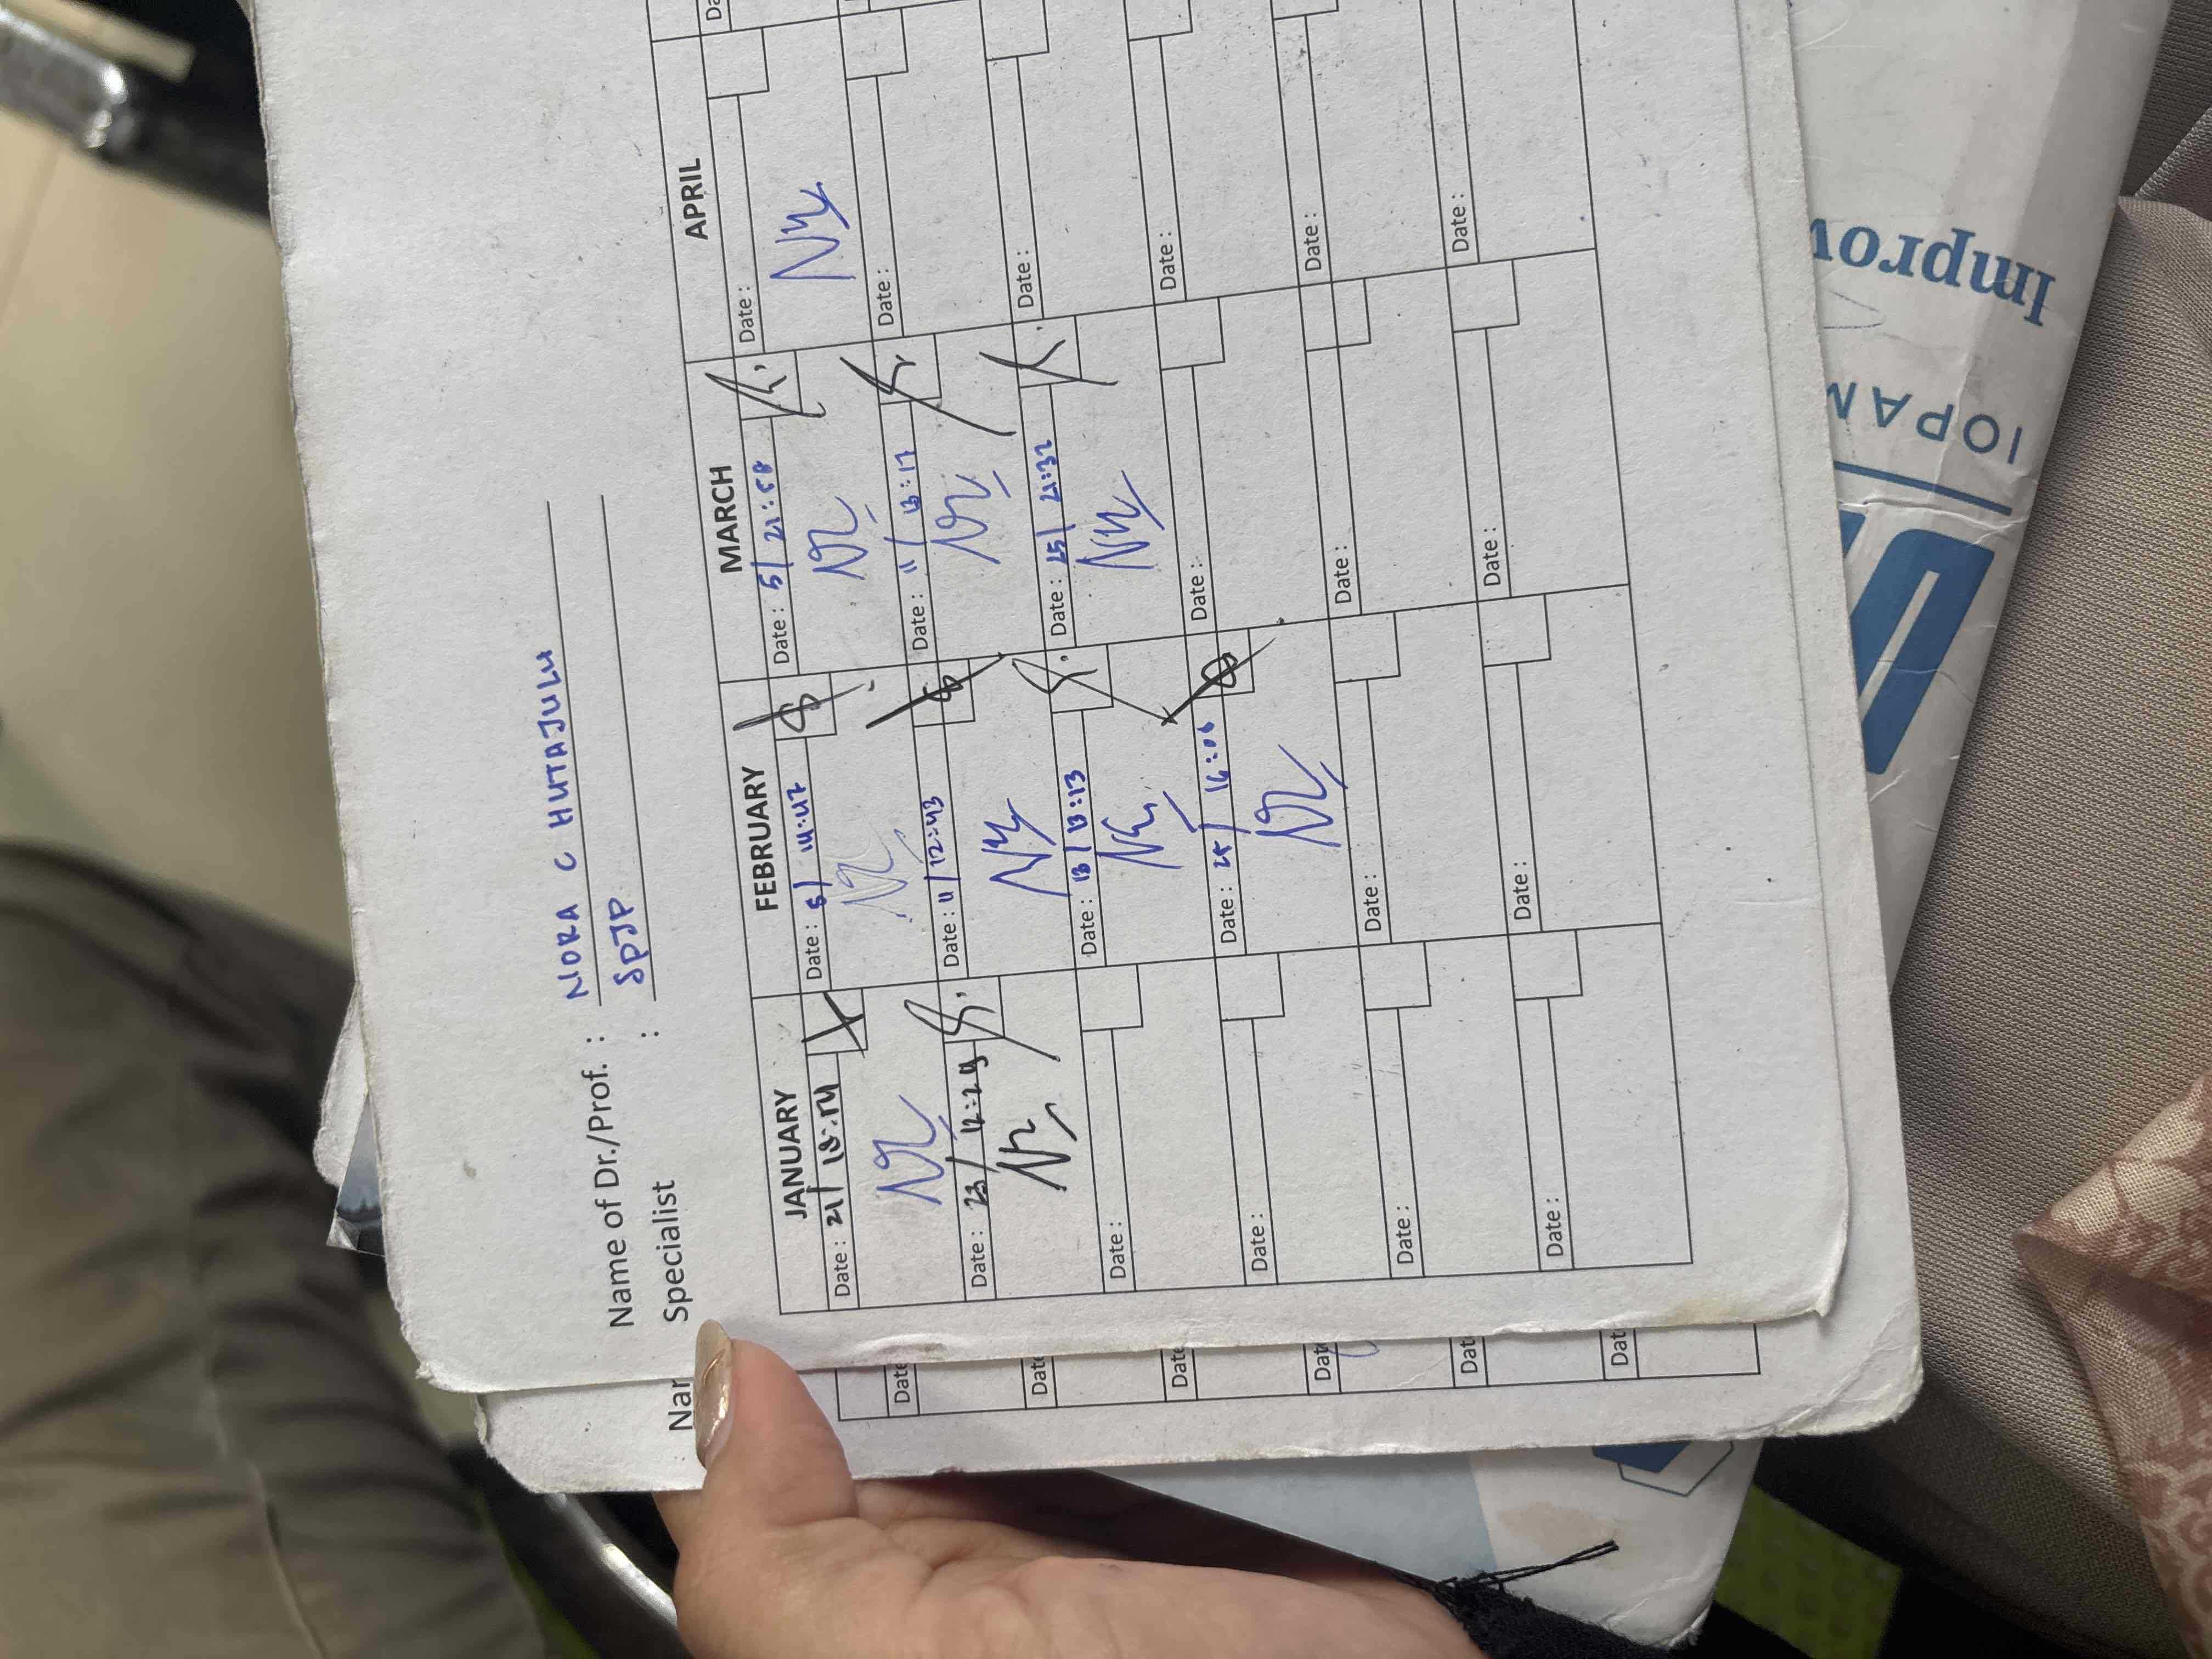 Name of Dr./Prof. : NORA C HUTAJULU
Specialist : SPJP
JANUARY FEBRUARY MARCH APRIL
Date : 21/ 18:54 Date : 5/ 14:47 Date : 5/ 21:58 Date :
Date : 23/ 12:24 Date : 11/ 12:43 Date : 11/ 13:17 Date :
Date : Date : 13/ 13:13 Date : 25/ 21:32 Date :
Date : Date : 25/ 16:06 Date : Date :
Date : Date : Date : Date :
Date : Date : Date : Date :
Nar
Date
Date
Date
Dat
Dat
Dat
Improv
IOPAM